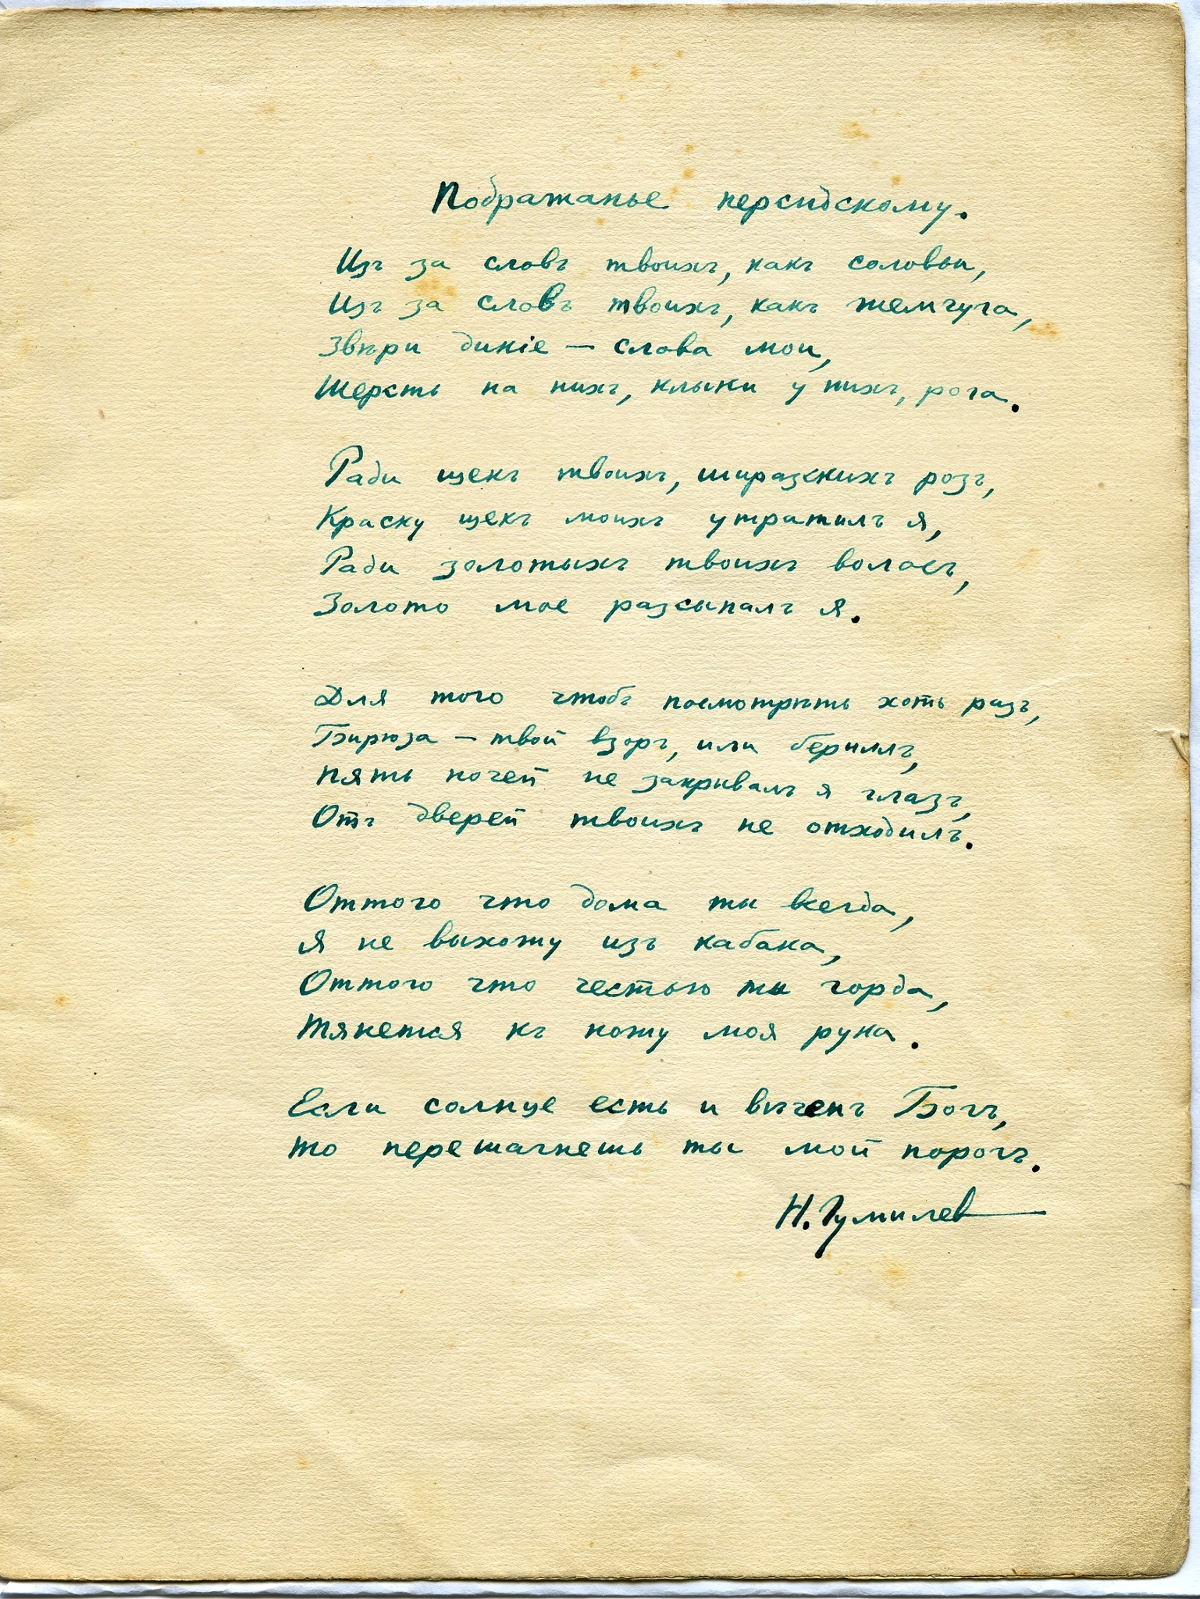 Пображанье персидскому.
Изъ за словъ твоихъ, какъ соловьи,
Изъ за словъ твоихъ, какъ жемчуга,
Звѣри дикіе — слова мои,
Шерсть на нихъ, клыки у нихъ, рога.
Ради щекъ твоихъ, ширазскихъ розъ,
Краску щекъ моихъ утратилъ я,
Ради золотыхъ твоихъ волосъ,
Золото мое разсыпалъ я.
Для того чтобъ посмотрѣть хоть разъ,
Бирюза — твой взоръ, или бериллъ,
Пять ночей не закрывалъ я глазъ,
Отъ дверей твоихъ не отходилъ.
Оттого что дома ты всегда,
Я не выхожу изъ кабака,
Оттого что честью ты горда,
Тянется къ ножу моя рука.
Если солнце есть и вѣченъ Богъ,
То перешагнешь ты мой порогъ.
Н. Гумилев